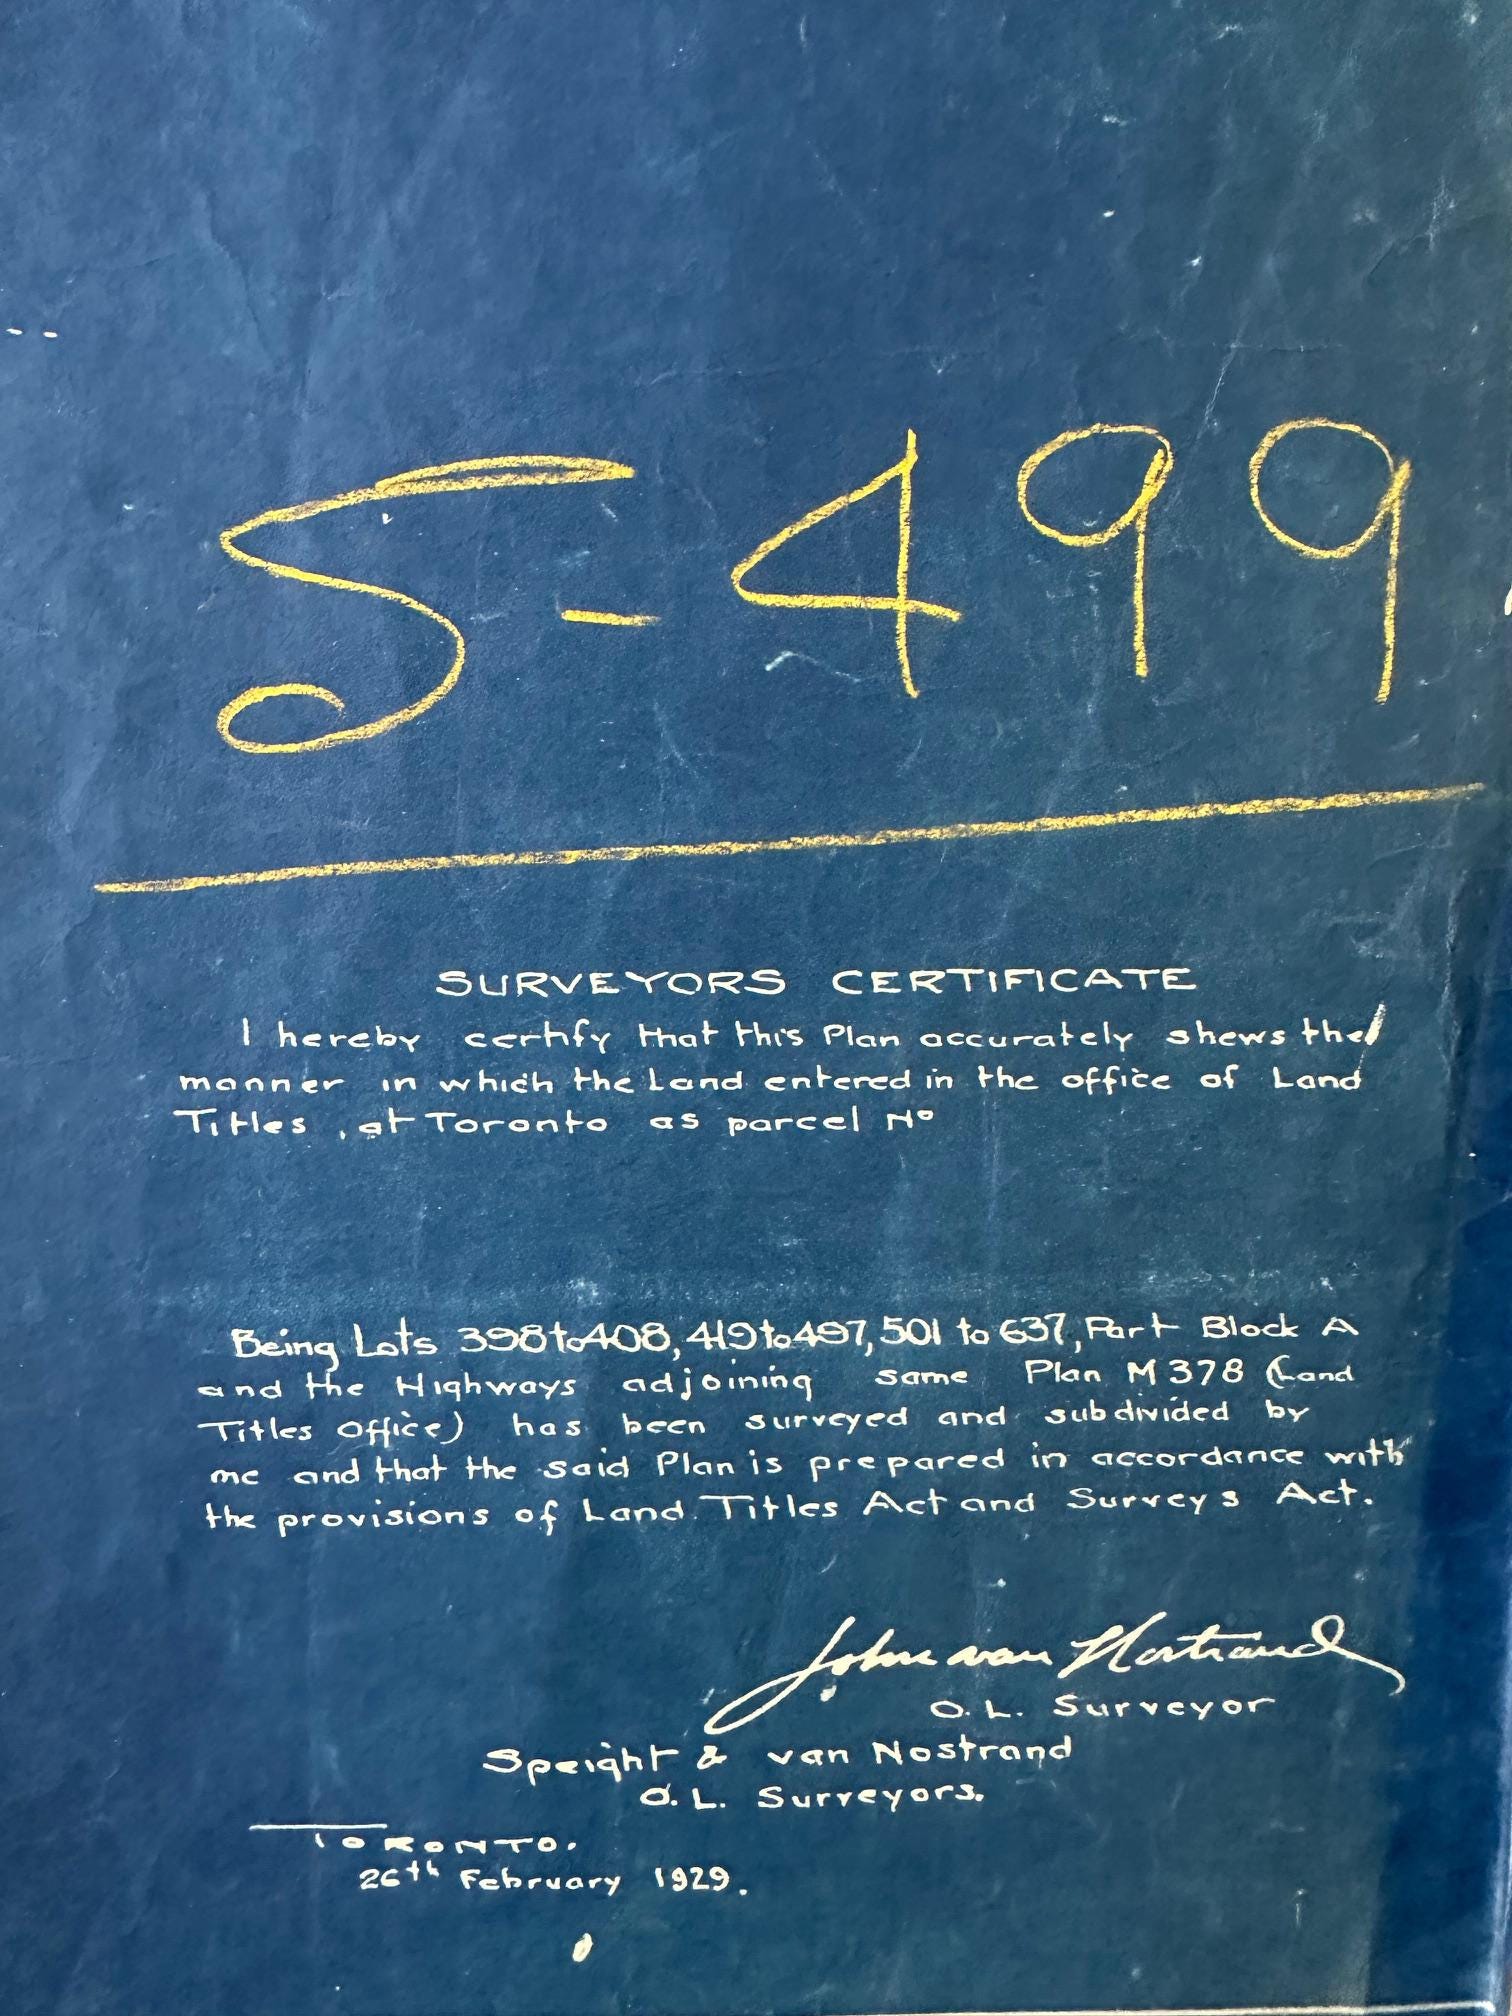 S-499
SURVEYORS CERTIFICATE
I hereby certify that this Plan accurately shews the
manner in which the Land entered in the office of Land
Titles, at Toronto as parcel Nº
Being Lots 398 to 408, 419 to 497, 501 to 637, Part Block A
and the Highways adjoining same Plan M378 (Land
Titles Office) has been surveyed and subdivided by
me and that the said Plan is prepared in accordance with
the provisions of Land Titles Act and Surveys Act.
John van Nostrand
O. L. Surveyor
Speight & van Nostrand
O. L. Surveyors.
TORONTO.
26th February 1929.